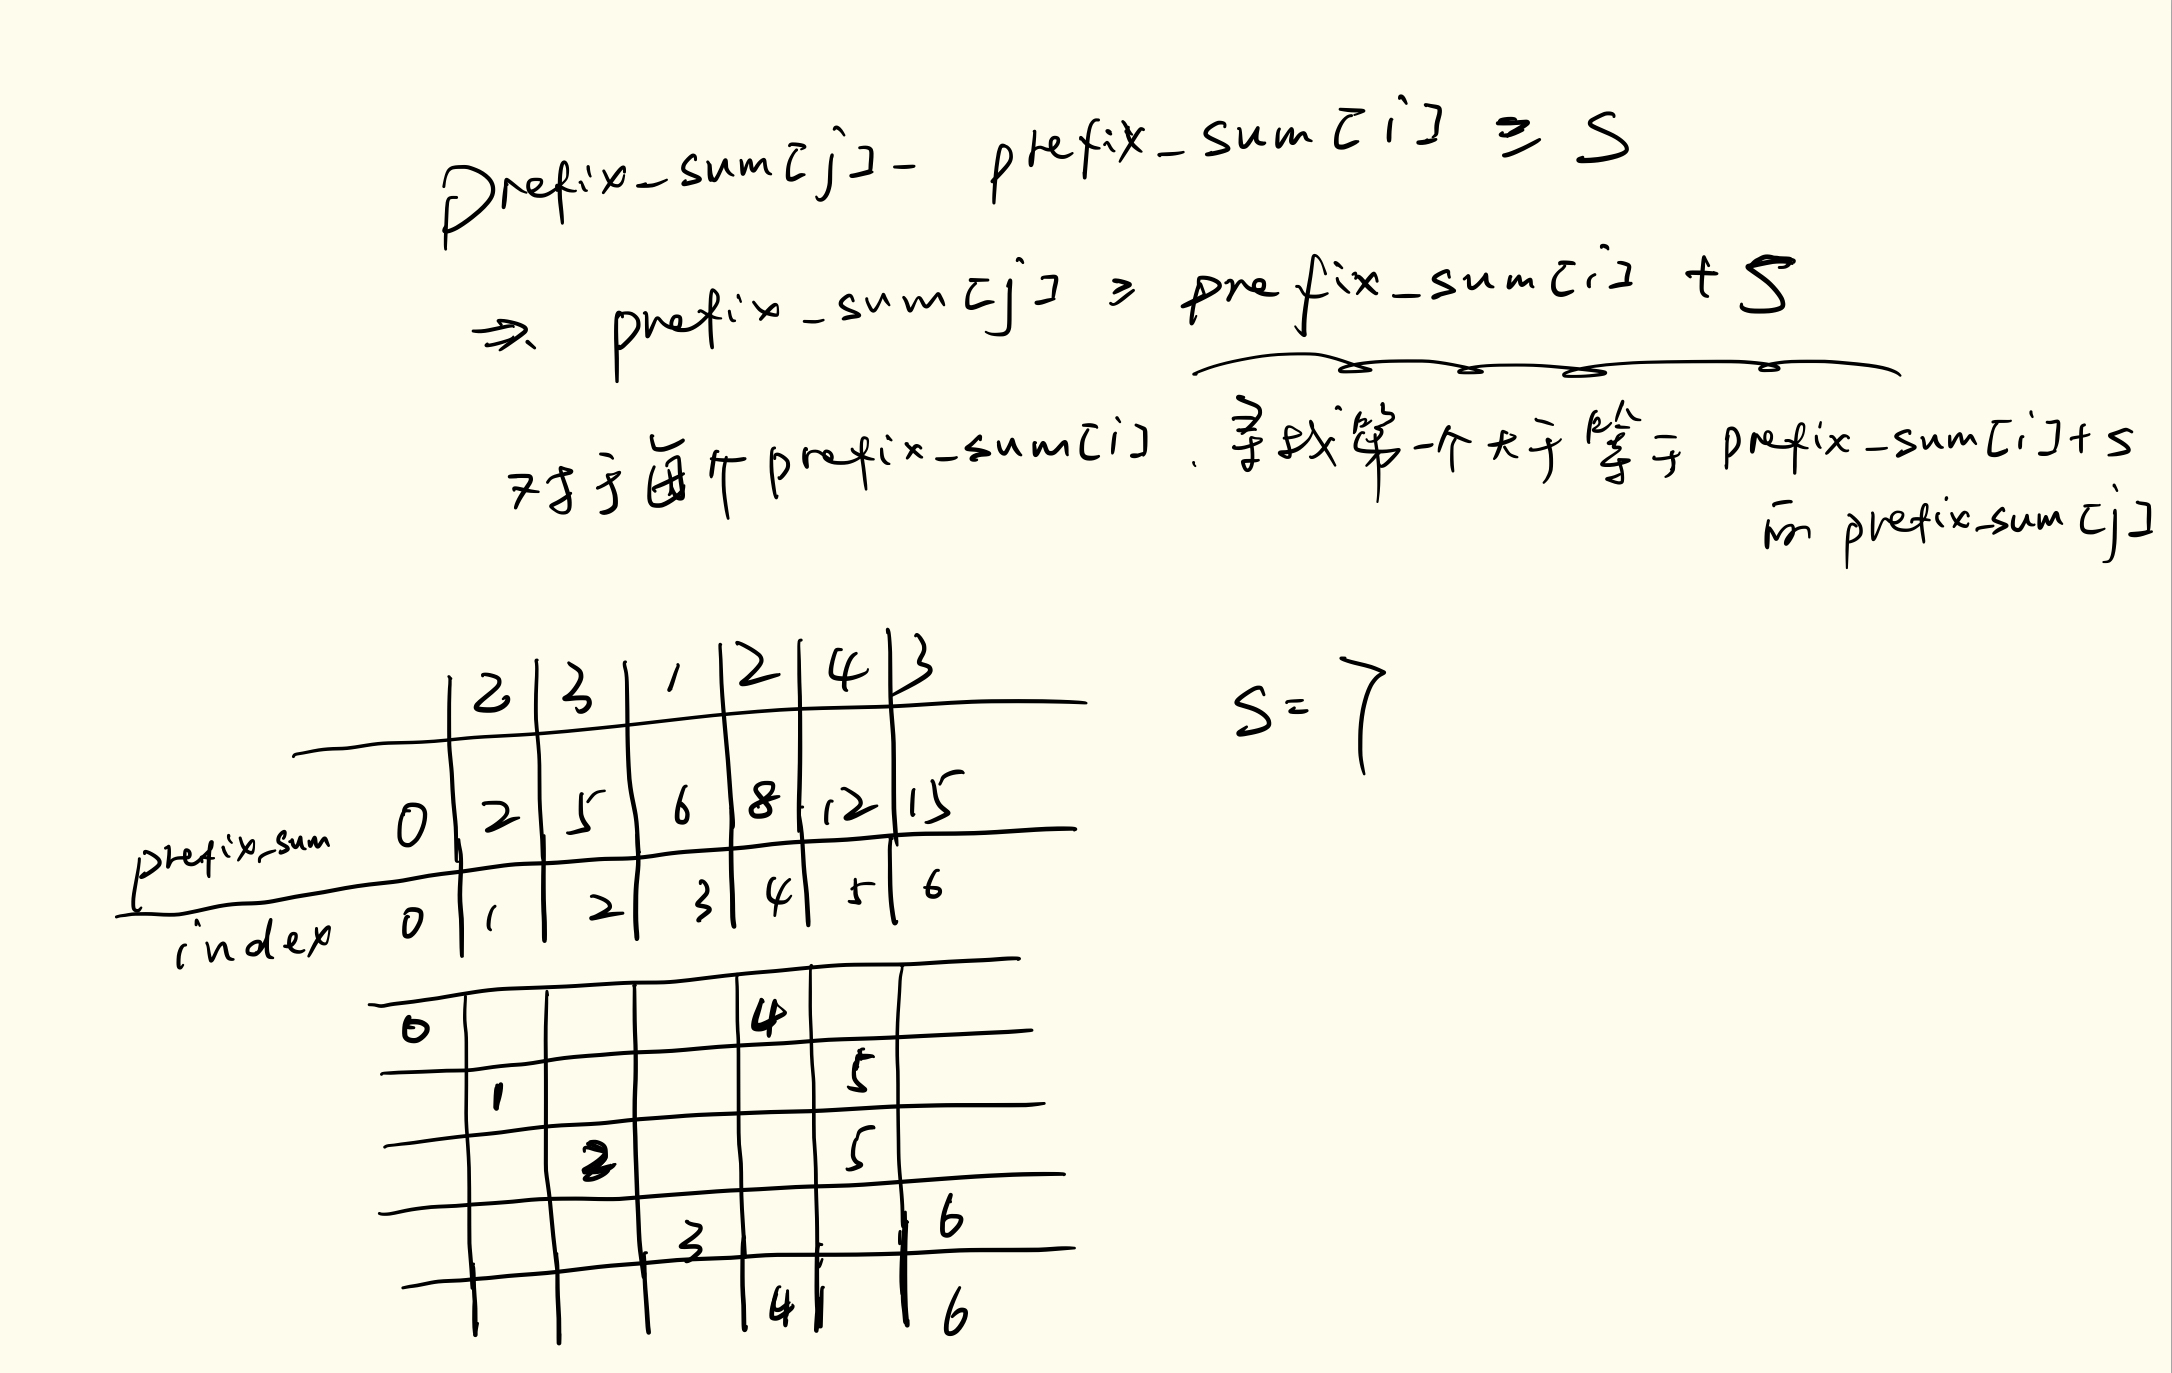 prefix_sum[j] - prefix_sum[i] ≥ S
⇒ prefix_sum[j] ≥ prefix_sum[i] + S
对于每个prefix_sum[i]. 寻找第一个大于等于 prefix_sum[i]+s
in prefix_sum[j]
2 3 1 2 4 3
S = 7
prefix_sum 0 2 5 6 8 12 15
index 0 1 2 3 4 5 6
0 4
1 5
2 5
3 6
4 6